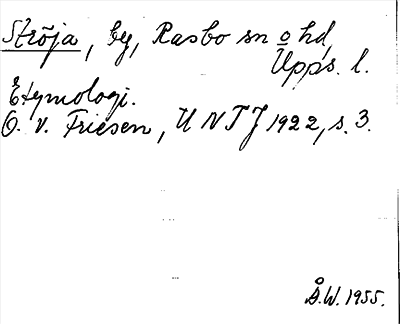 Ströja, by, Rasbo sn o hd,
Upps. l.
Etymologi.
O. v. Friesen, UNTJ 1922, s. 3.
Å.W. 1955.